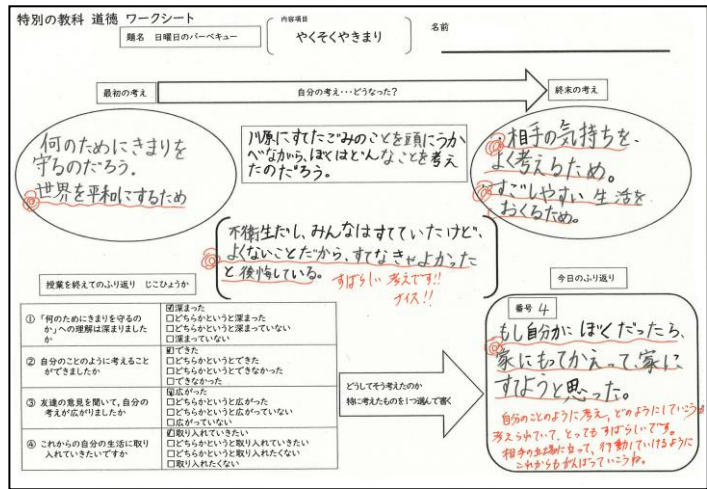 特別の教科 道徳 ワークシート
題名 日曜日のバーベキュー
内容項目
やくそくやきまり
名前
最初の考え
自分の考え・・・どうなった?
終末の考え
何のためにきまりを
守るのだろう。
世界を平和にするため
川原にすてたごみのことを頭にうか
べながら、ぼくはどんなことを考え
たのだろう。
・相手の気持ちを、
よく考えるため。
・すごしやすい生活を
おくるため。
不衛生だし、みんなはすてていたけど、
よくないことだから、すてなきゃよかった
と後悔している。
すばらしい考えです!!
ナイス!!
授業を終えてのふり返り じこひょうか
① 「何のためにきまりを守るの
か」への理解は深まりました
か
☑深まった
□どちらかというと深まった
□どちらかというと深まっていない
□深まっていない
② 自分のことのように考えること
ができましたか
☑できた
□どちらかというとできた
□どちらかというとできなかった
□できなかった
③ 友達の意見を聞いて,自分の
考えが広がりましたか
☑広がった
□どちらかというと広がった
□どちらかというと広がっていない
□広がっていない
④ これからの自分の生活に取り
入れていきたいですか
☑取り入れていきたい
□どちらかというと取り入れていきたい
□どちらかというと取り入れたくない
□取り入れたくない
どうしてそう考えたのか
特に考えたものを1つ選んで書く
今日のふり返り
番号 4
もし自分がぼくだったら、
家にもってかえって、家に
すてようと思った。
自分のことのように考え,どのようにしていこうか
考えられていて,とってもすばらしいです。
相手の立場に立って,行動していけるように
これからもがんばっていこうね。